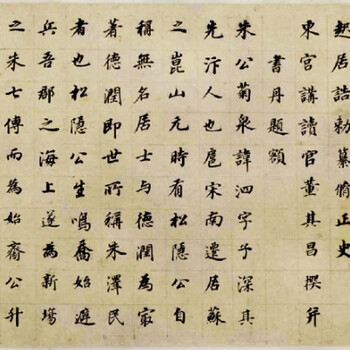 起居誥勅纂脩正史
東宮講讀官董其昌撰并
書丹題額
朱公菊泉諱泗字子深其
先汴人也扈宋南遷居蘇
之崑山元時有松隱公自
稱無名居士与德潤為㝡
著德潤即世所稱朱澤民
者也松隱公生鳴喬始避
兵吾郡之海上遂為新塲
之朱七傳而為始裔公升